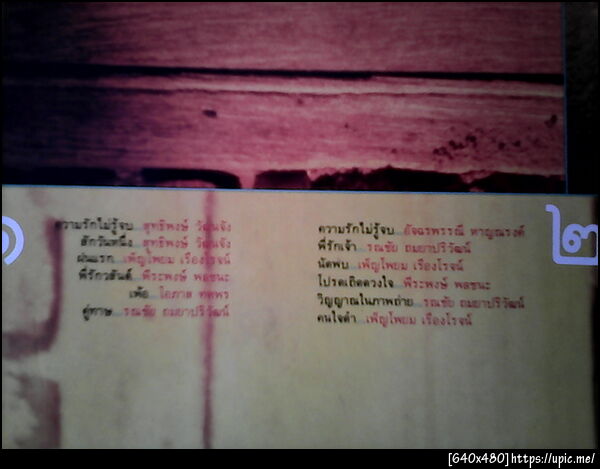 ๑
ความรักไม่รู้จบ...สุทธิพงษ์ วัฒนจัง
สักวันหนึ่ง...สุทธิพงษ์ วัฒนจัง
ฝนแรก...เพ็ญโพยม เรืองโรจน์
พี่รักวสันต์...พีระพงษ์ พลชนะ
เพ้อ...โอภาส ทศพร
คู่ทาษ...รณชัย ถมยาปริวัฒน์
๒
ความรักไม่รู้จบ...อัจฉรพรรณี หาญณรงค์
พี่รักเจ้า...รณชัย ถมยาปริวัฒน์
นัดพบ...เพ็ญโพยม เรืองโรจน์
โปรดเถิดดวงใจ...พีระพงษ์ พลชนะ
วิญญาณในภาพถ่าย...รณชัย ถมยาปริวัฒน์
คนใจดำ...เพ็ญโพยม เรืองโรจน์
[640x480]https://upic.me/